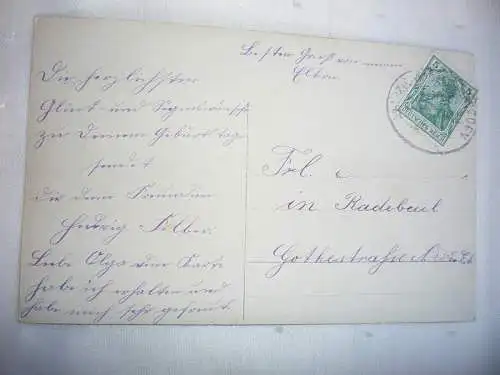 Die herzlichsten
Glück- und Segenswünsche
zu Deinem Geburtstag
sendet
dir deine Freundin
Hedwig
Liebe Olga deine Karte
habe ich erhalten und
habe mich sehr gefreut
Besten Gruß von meinen
Eltern
Frl.
in Radebeul
Gothestrasse